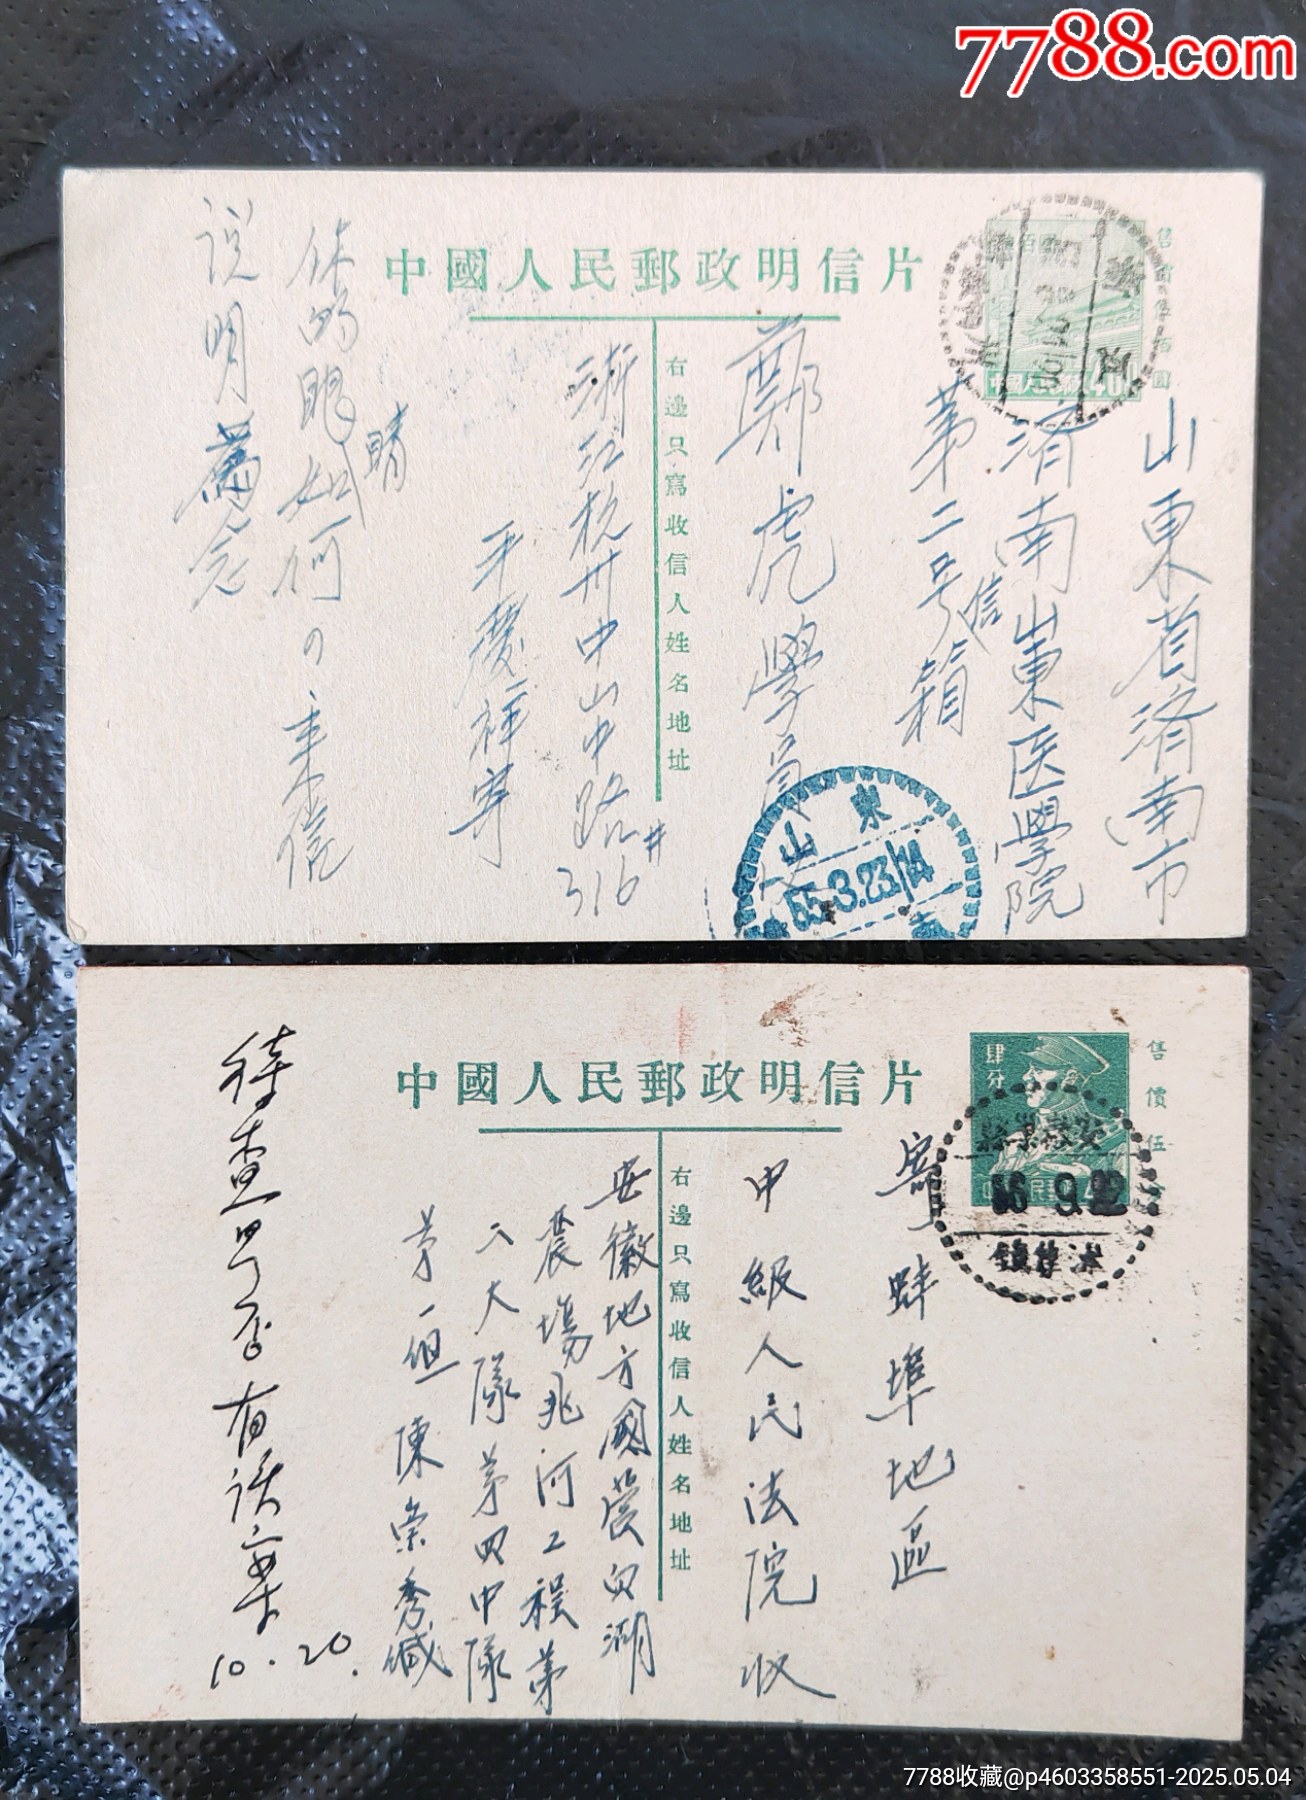 7788.com
中國人民郵政明信片
售價伍百圓
中國人民郵政400
山東省濟南市
濟南山東医學院
第二号信箱
鄭虎學員
右邊只寫收信人姓名地址
浙江杭州中山中路316#
平慶祥寄
你的眼睛如何?来信
說明為念
山東
55.3.23/14
中國人民郵政明信片
肆分
售價伍
安徽巢縣
56.9.22
寄蚌埠地區
中級人民法院收
右邊只寫收信人姓名地址
安徽地方國營白湖
農場兆河工程第
二大隊第四中隊
第一組陳崇秀緘
待查是否有該案
10.20.
7788收藏@p4603358551-2025.05.04